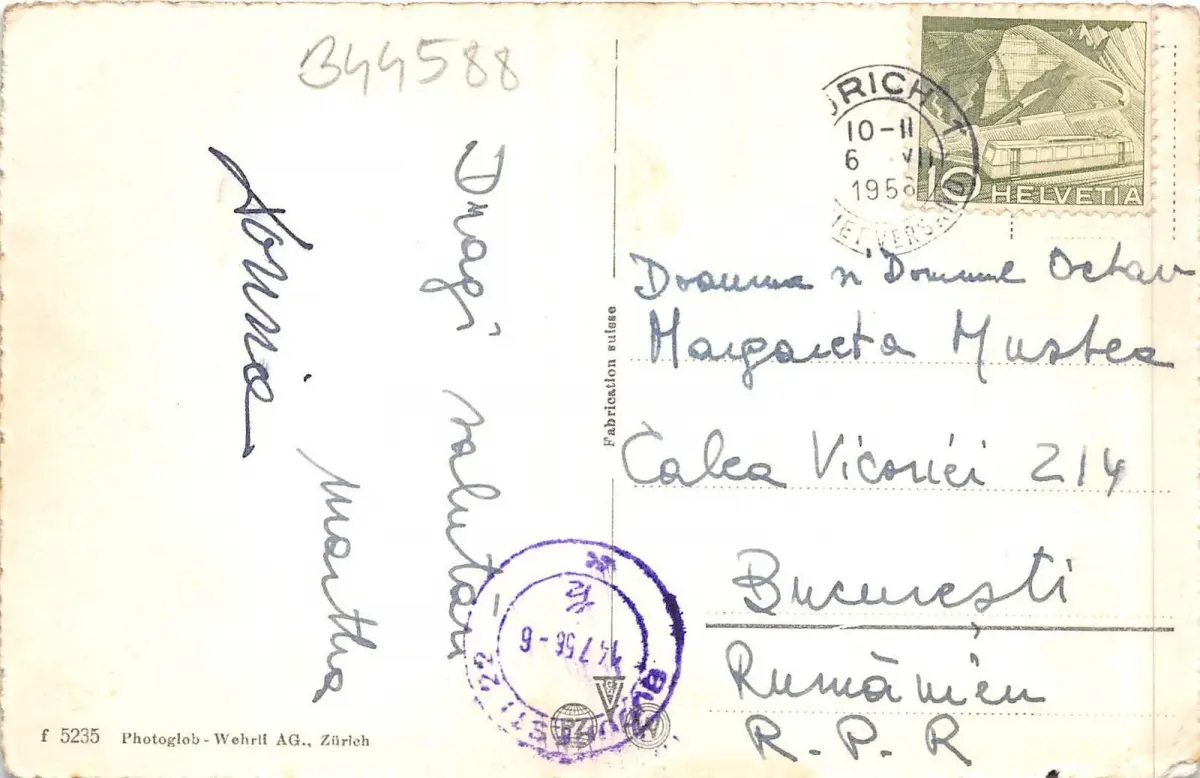 B44588
Dragi salutări
Martha
ZÜRICH 1
10-11
6 VII
1956
10 HELVETIA
Doamna și Domnul Octav
Margareta Mustea
Calea Victoriei 214
București
Rumänien
R.P.R
Fabrication suisse
BUCUREȘTI 22
14 7 56 - 6
PZ
W
f 5235 Photoglob-Wehrli AG., Zürich